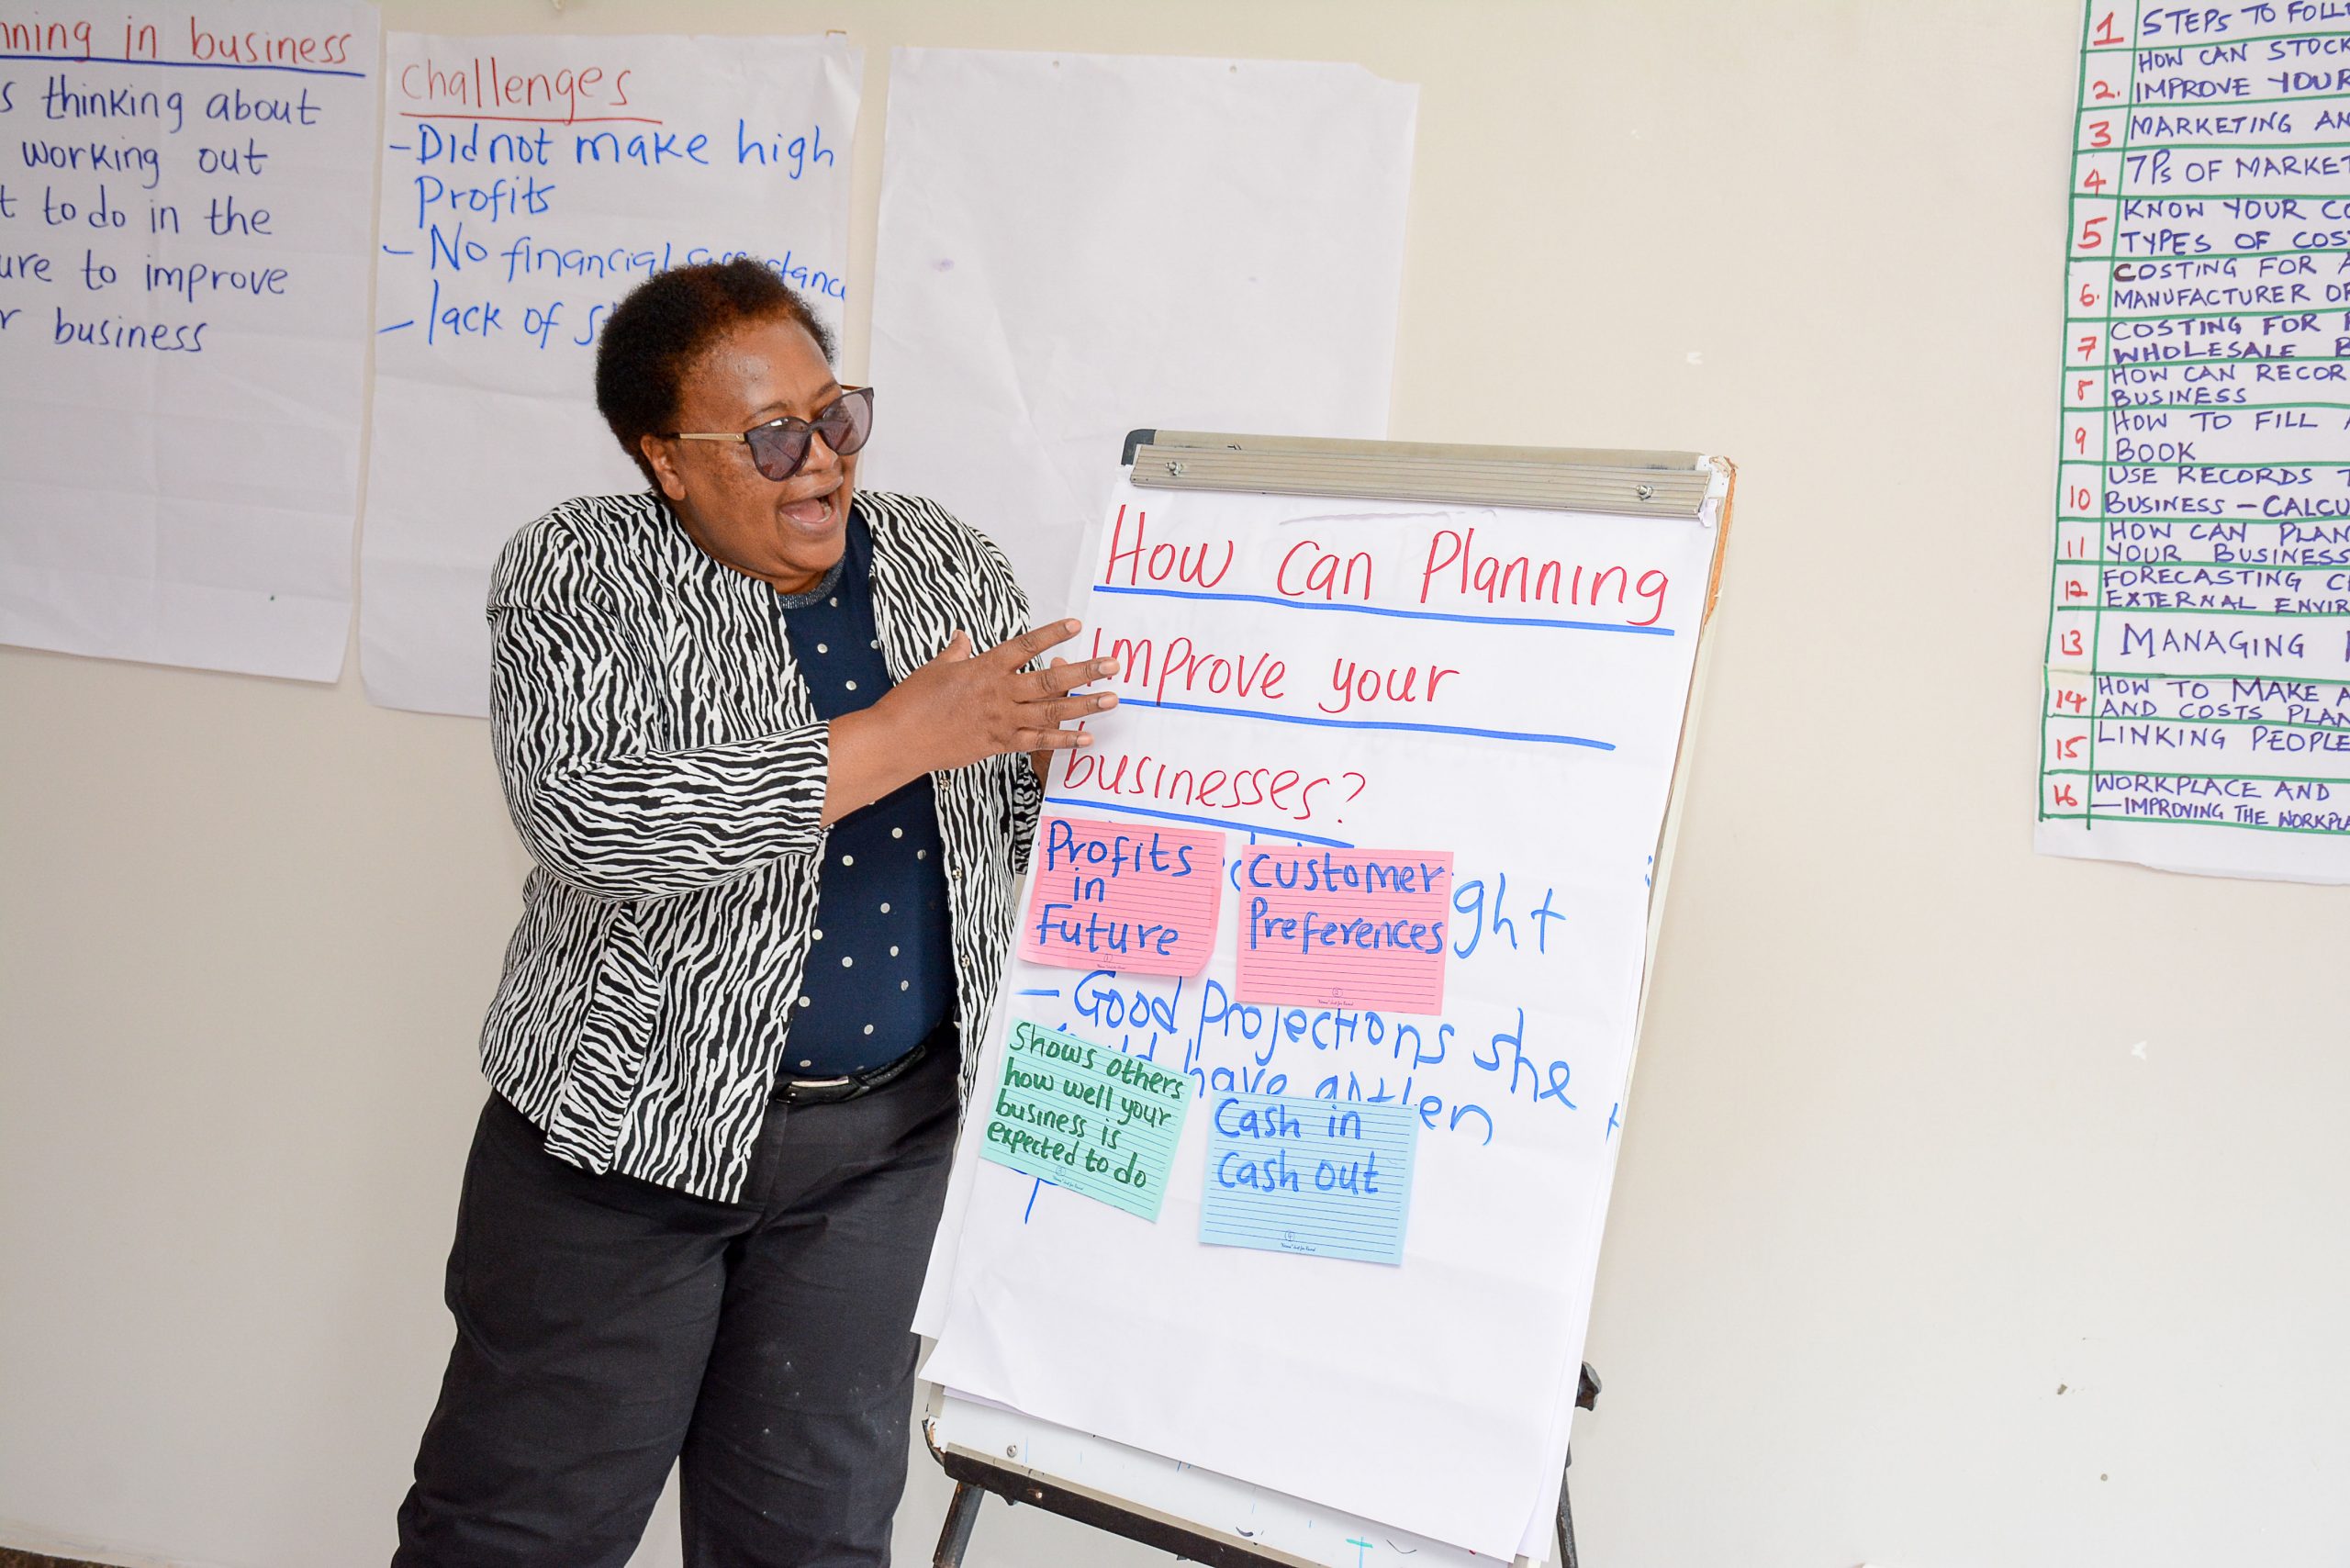 in business
thinking about
working out
to do in the
to improve
business
challenges
- Did not make high
Profits
- No financial
- lack of
How can Planning
Improve your
businesses?
Profits
in
Future
Customer
Preferences
- Good Projections she
have gotten
Shows others
how well your
business is
expected to do
Cash in
Cash out
1 STEPS TO
HOW CAN STOCK
2. IMPROVE YOUR
3 MARKETING
4 7Ps OF
KNOW YOUR
5 TYPES OF
COSTING FOR
6. MANUFACTURER
COSTING FOR
7 WHOLESALE
8 HOW CAN
BUSINESS
9 HOW TO FILL
BOOK
USE RECORDS
10 BUSINESS -
HOW CAN
11 YOUR BUSINESS
12 FORECASTING
EXTERNAL
13 MANAGING
HOW TO MAKE
14 AND COSTS
15 LINKING PEOPLE
WORKPLACE AND
16 - IMPROVING THE